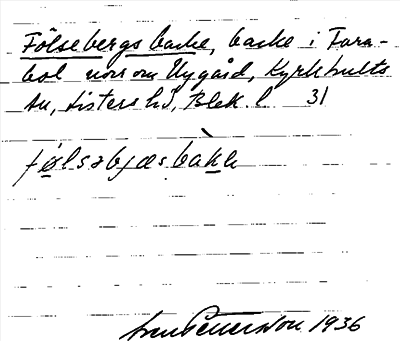 Fölsebergs backe, backe i Fara-
bol norr om Nygård, Kyrkhults
sn, Listers hd, Blek. l 31
følsəbjæsbàkk
Pettersson 1936